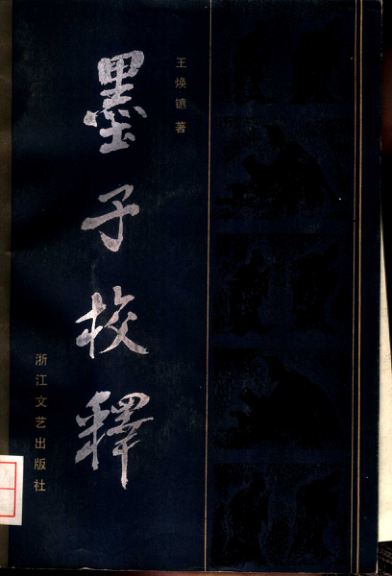 王焕镳著
墨子校釋
浙江文艺出版社